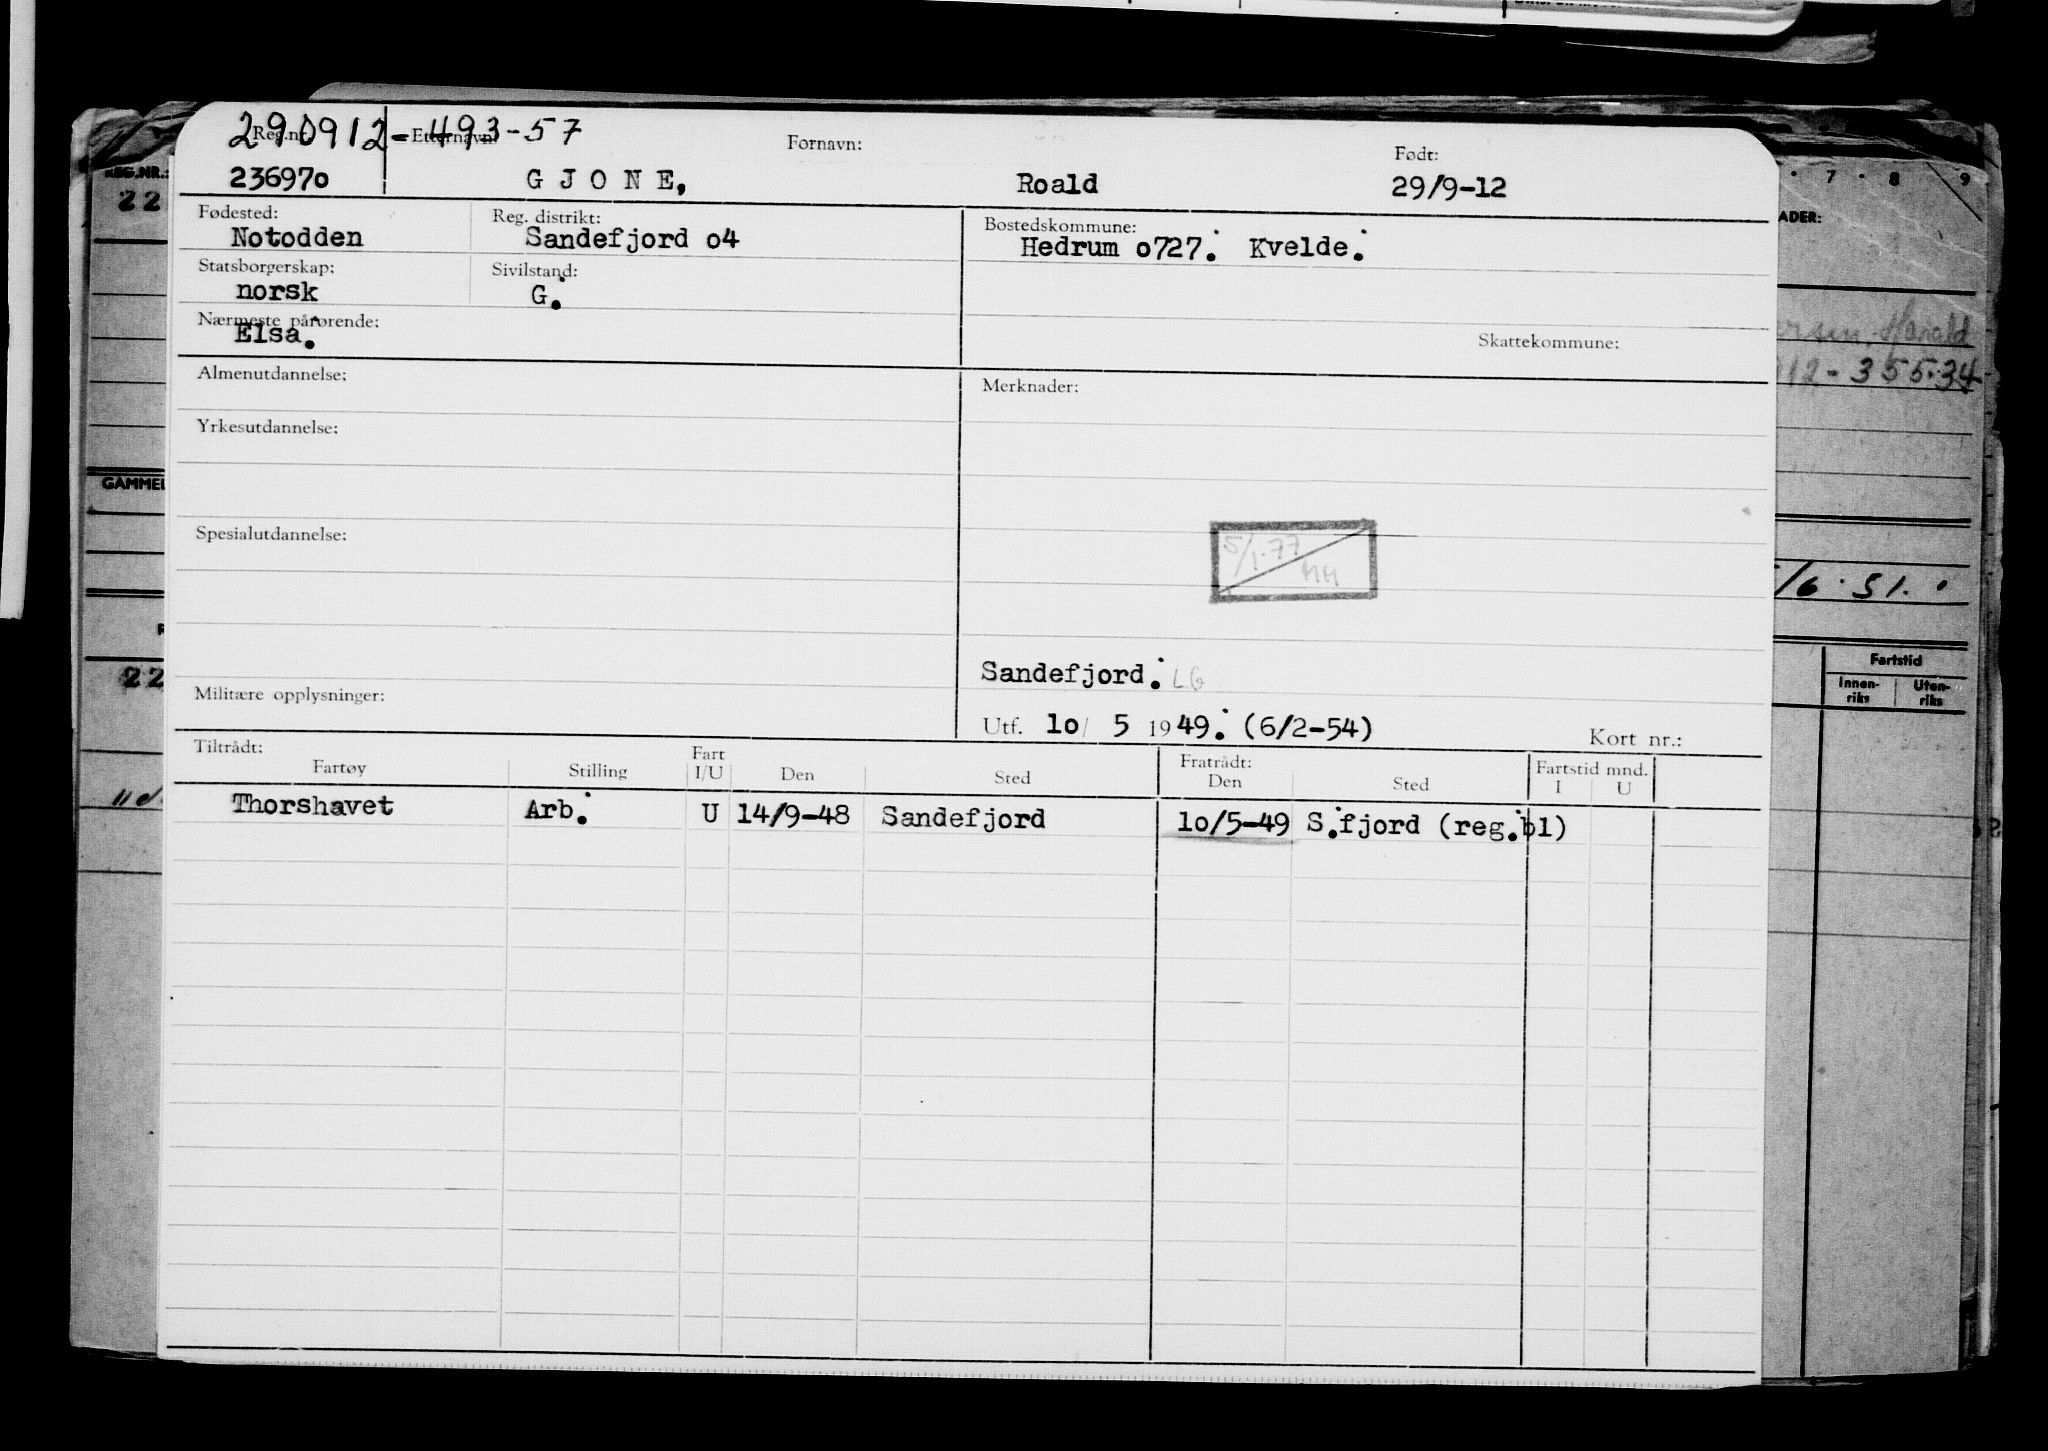 290912-493-57
Reg.nr. Etternavn: Fornavn: Født:
23697o G J O N E, Roald 29/9-12
Fødested: Reg. distrikt: Bostedskommune:
Notodden Sandefjord o4 Hedrum o727. Kvelde.
Statsborgerskap: Sivilstand:
norsk G.
Nærmeste pårørende: Skattekommune:
Elsa.
Almenutdannelse: Merknader:
Yrkesutdannelse:
Spesialutdannelse:
5/1.77
HH
Sandefjord. LG
Militære opplysninger:
Utf. 1o/ 5 1949. (6/2-54) Kort nr.:
Tiltrådt: Fratrådt:
Fartøy Stilling Fart I/U Den Sted Den Sted Fartstid mnd. I U
Thorshavet Arb. U 14/9-48 Sandefjord 1o/5-49 S.fjord (reg.bl)
REG.NR.:
22
GAMMEL
22
7 · 8 9
ADER:
Harald
12-355.34
/6.51.
Fartstid
Innen-riks Uten-riks